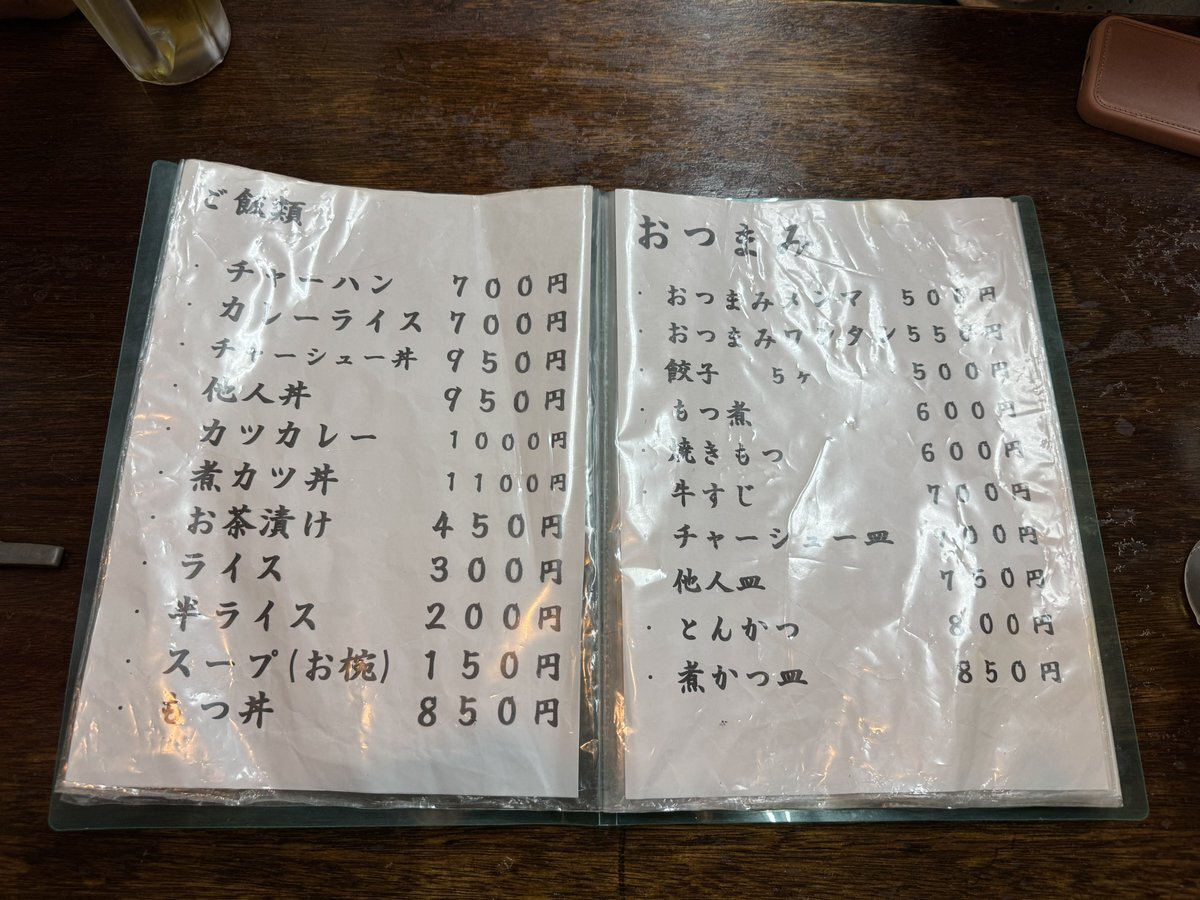 ご飯類
・チャーハン 700円
・カレーライス 700円
・チャーシュー丼 950円
・他人丼 950円
・カツカレー 1000円
・煮カツ丼 1100円
・お茶漬け 450円
・ライス 300円
・半ライス 200円
・スープ(お椀) 150円
・もつ丼 850円
おつまみ
・おつまみメンマ 500円
・おつまみワンタン 550円
・餃子 5ヶ 500円
・もつ煮 600円
・焼きもつ 600円
・牛すじ 700円
・チャーシュー皿 円
・他人皿 750円
・とんかつ 800円
・煮かつ皿 850円